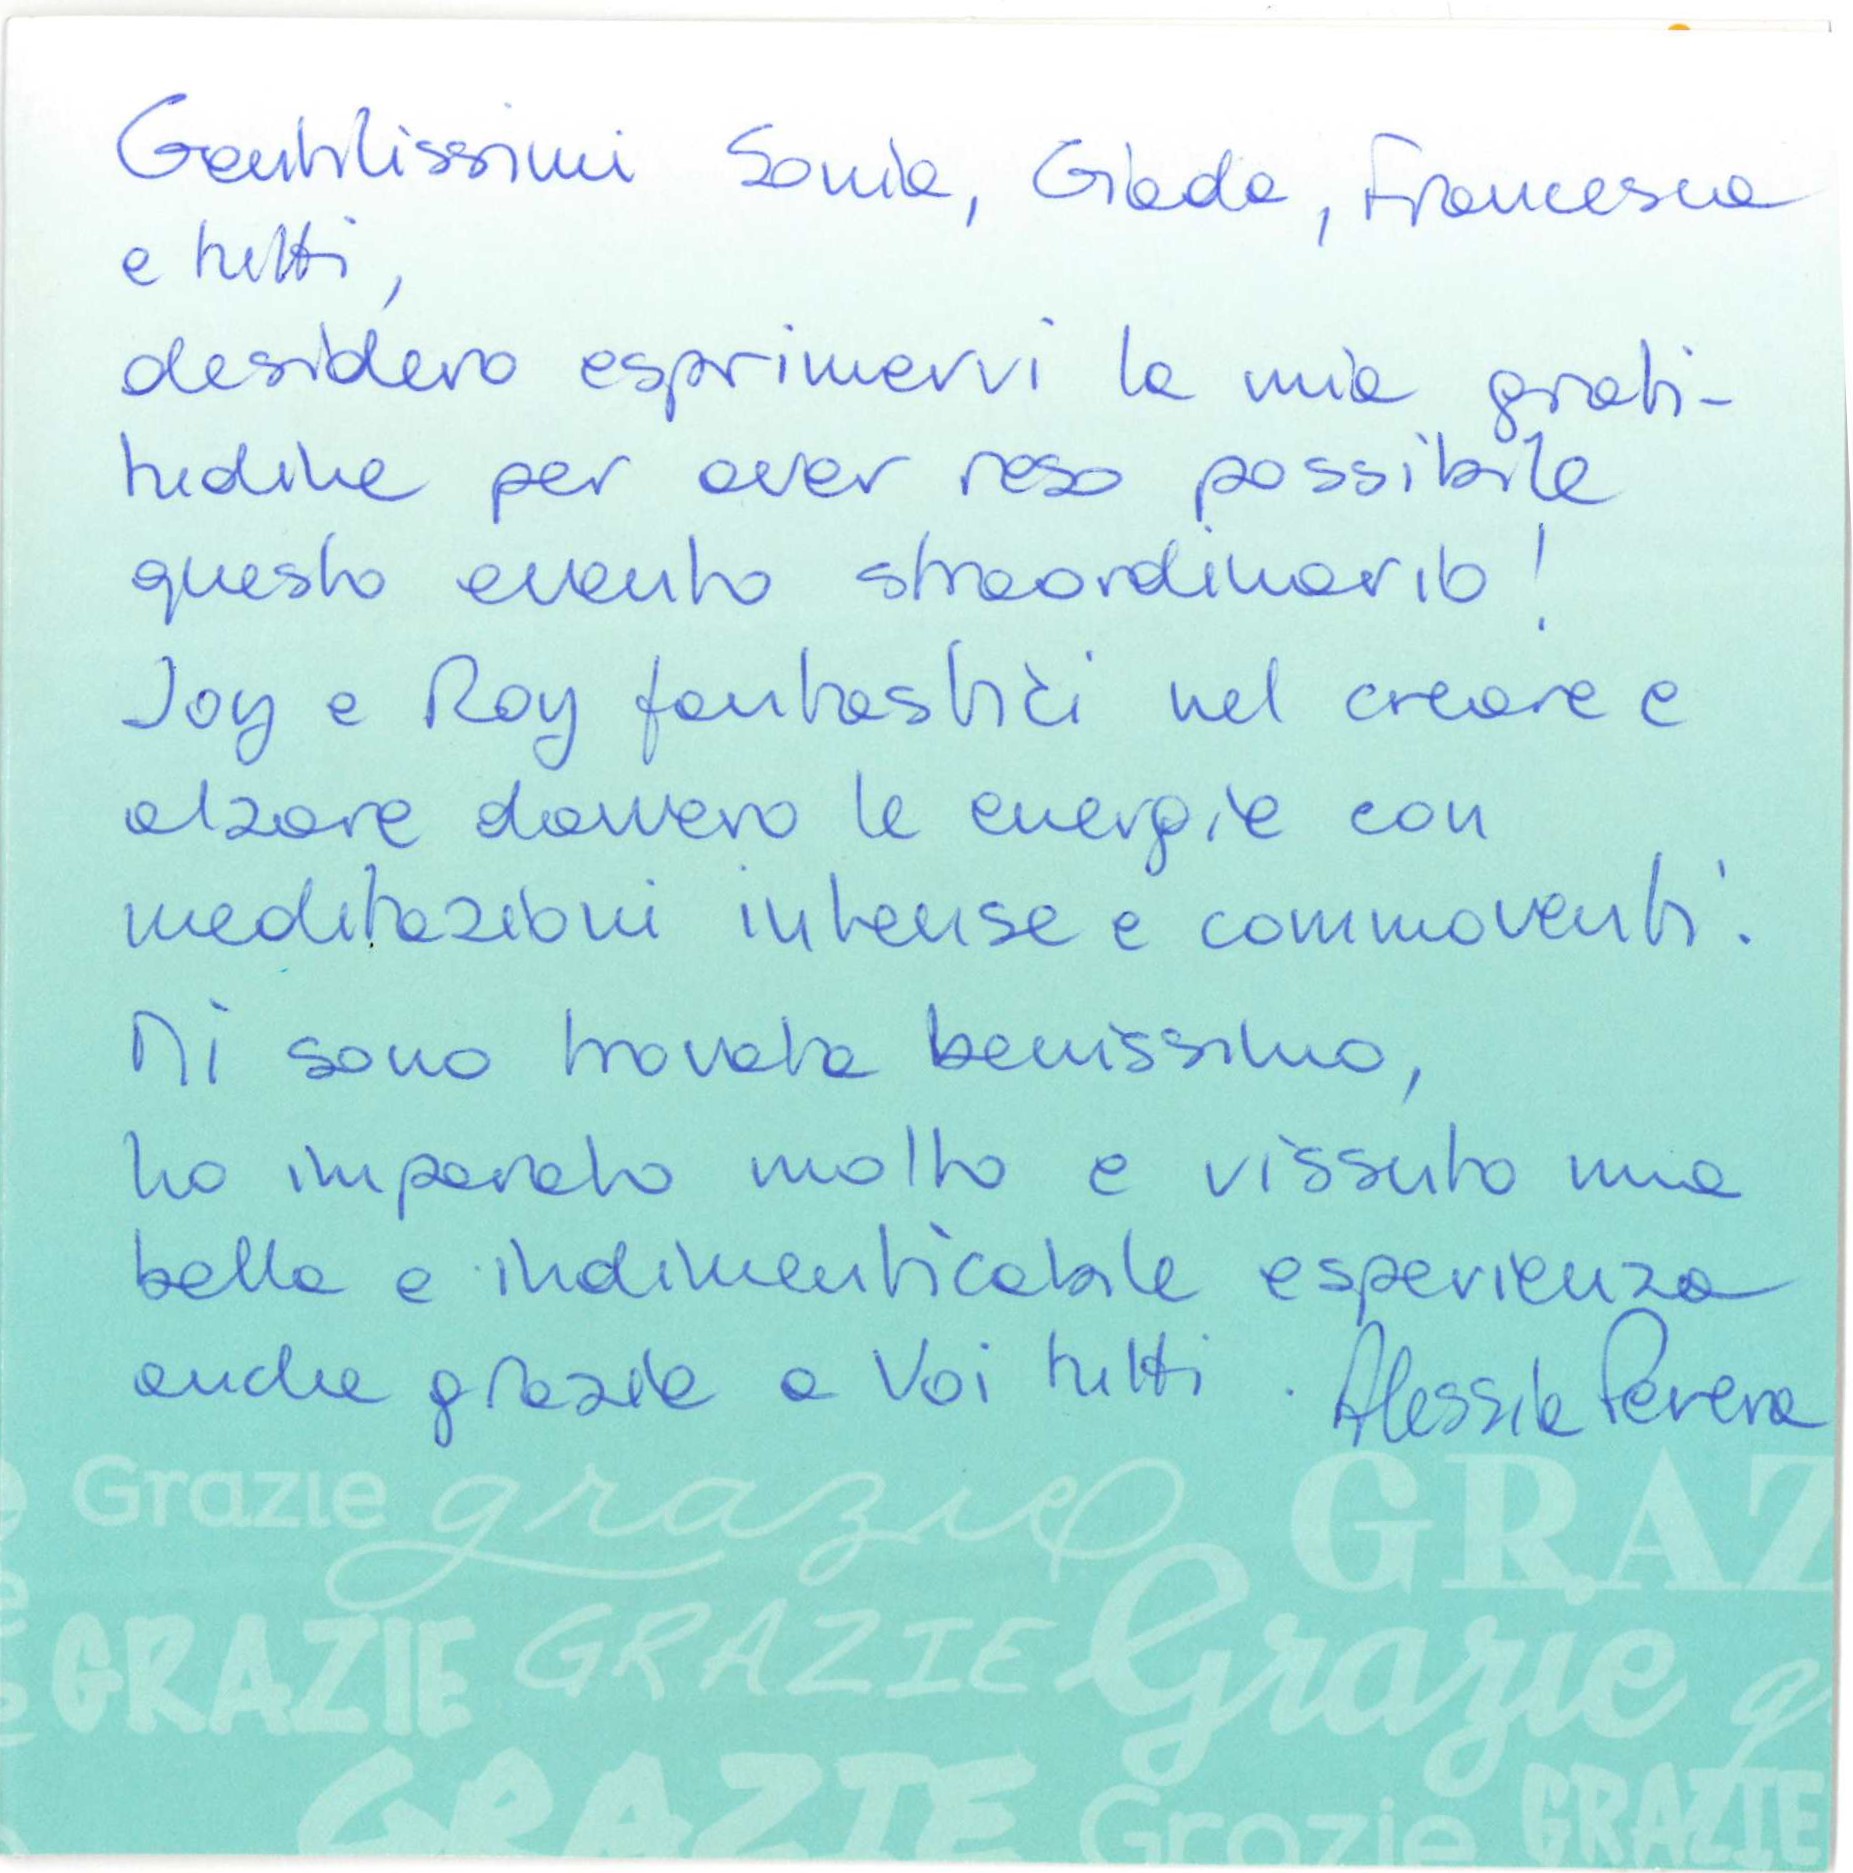 Gentilissimi Sonia, Giada, Francesca
e tutti,
desidero esprimervi la mia grati-
tudine per aver reso possibile
questo evento straordinario!
Joy e Roy fantastici nel creare e
alzare davvero le energie con
meditazioni intense e commoventi.
Mi sono trovata benissimo,
ho imparato molto e vissuto una
bella e indimenticabile esperienza
anche grazie a Voi tutti. Alessia
Grazie grazie GRAZ
GRAZIE GRAZIE Grazie g
GRAZIE Grazie GRAZIE